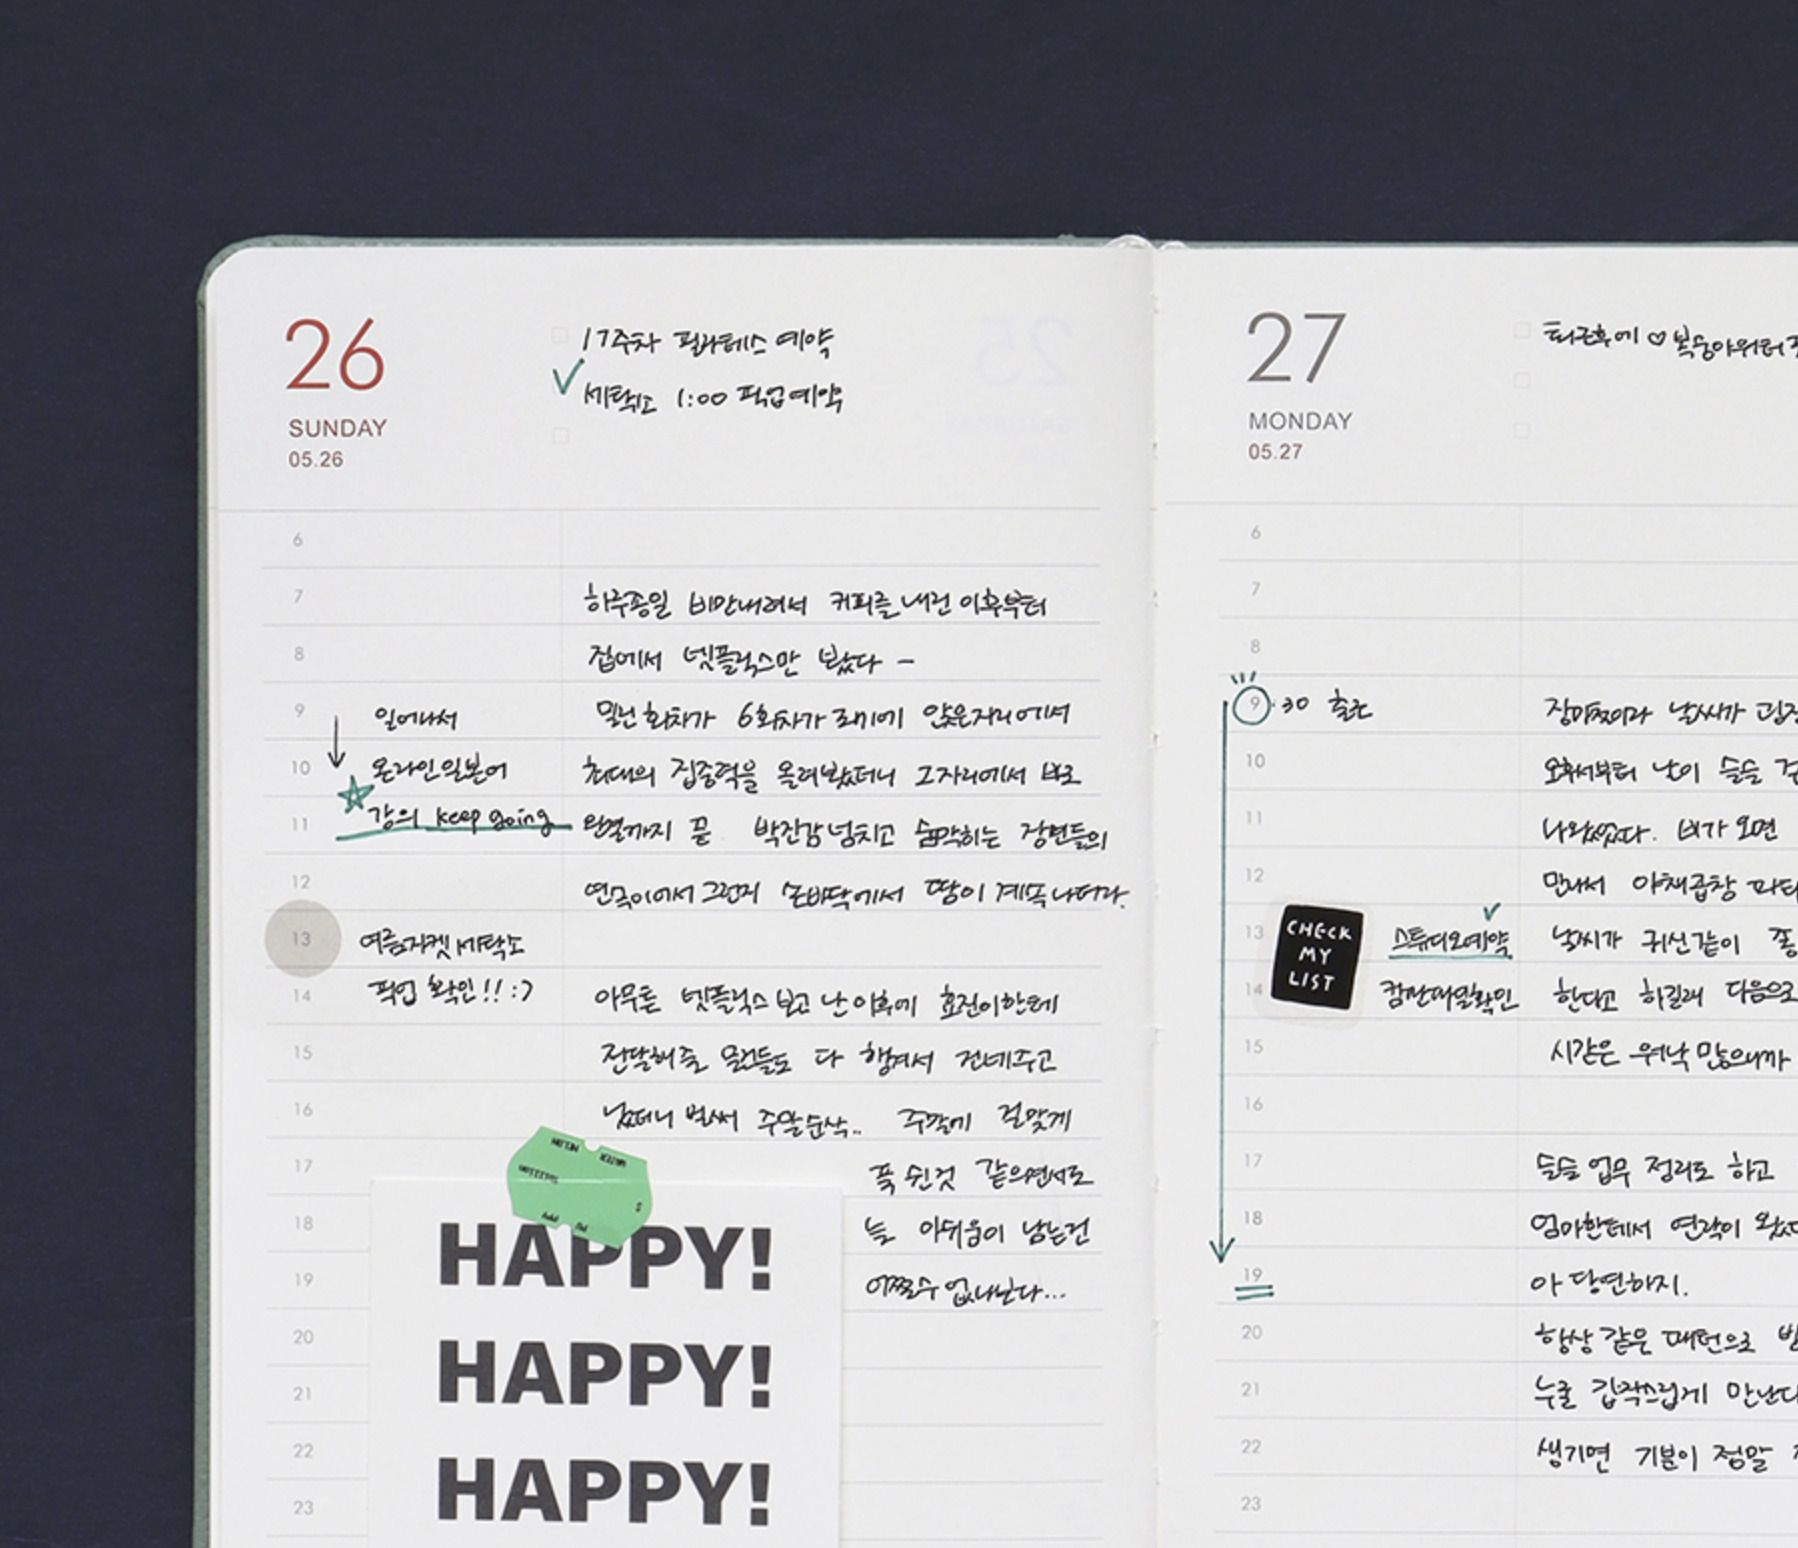 26
SUNDAY
05.26
17주차 필라테스 예약
세탁소 1:00 픽업예약
6
7
하루종일 비만내려서 커피를 내린 이후부터
8
집에서 넷플릭스만 봤다 -
9
일어나서
밀린 회차가 6회차가 되기에 앉은자리에서
10
온라인일본어
최대의 집중력을 올려봤더니 그자리에서 바로
11
강의 keep going
완결까지 끝 박진감넘치고 숨막히는 장면들의
12
연속이어서 그런지 손바닥에서 땀이 계속 나더라.
13
여름자켓 세탁소
픽업 확인!! :)
14
아무튼 넷플릭스 보고 난 이후에 효진이한테
15
전달해줄 물건들도 다 챙겨서 건네주고
16
났더니 벌써 주말순삭.. 주말에 걸맞게
17
푹 쉰것 같으면서도
18
늘 아쉬움이 남는건
19
어쩔수 없나보다...
20
21
22
23
HAPPY!
HAPPY!
HAPPY!
27
MONDAY
05.27
퇴근후에 ♡ 복숭아워터
6
7
8
9:30 출근
장마철이라 날씨가 굉장
10
오후서부터 날이 슬슬
11
나왔었다. 비가 오면
12
만나서 야채곱창 파티
13
CHECK
MY
LIST
스튜디오예약
날씨가 귀신같이
14
컴펌메일확인
한다고 하길래 다음으로
15
시간은 워낙 많으니까
16
17
슬슬 업무 정리도 하고
18
엄마한테서 연락이 왔
19
아 당연하지.
20
항상 같은 패턴으로
21
누굴 갑작스럽게 만난다
22
생기면 기분이 정말
23